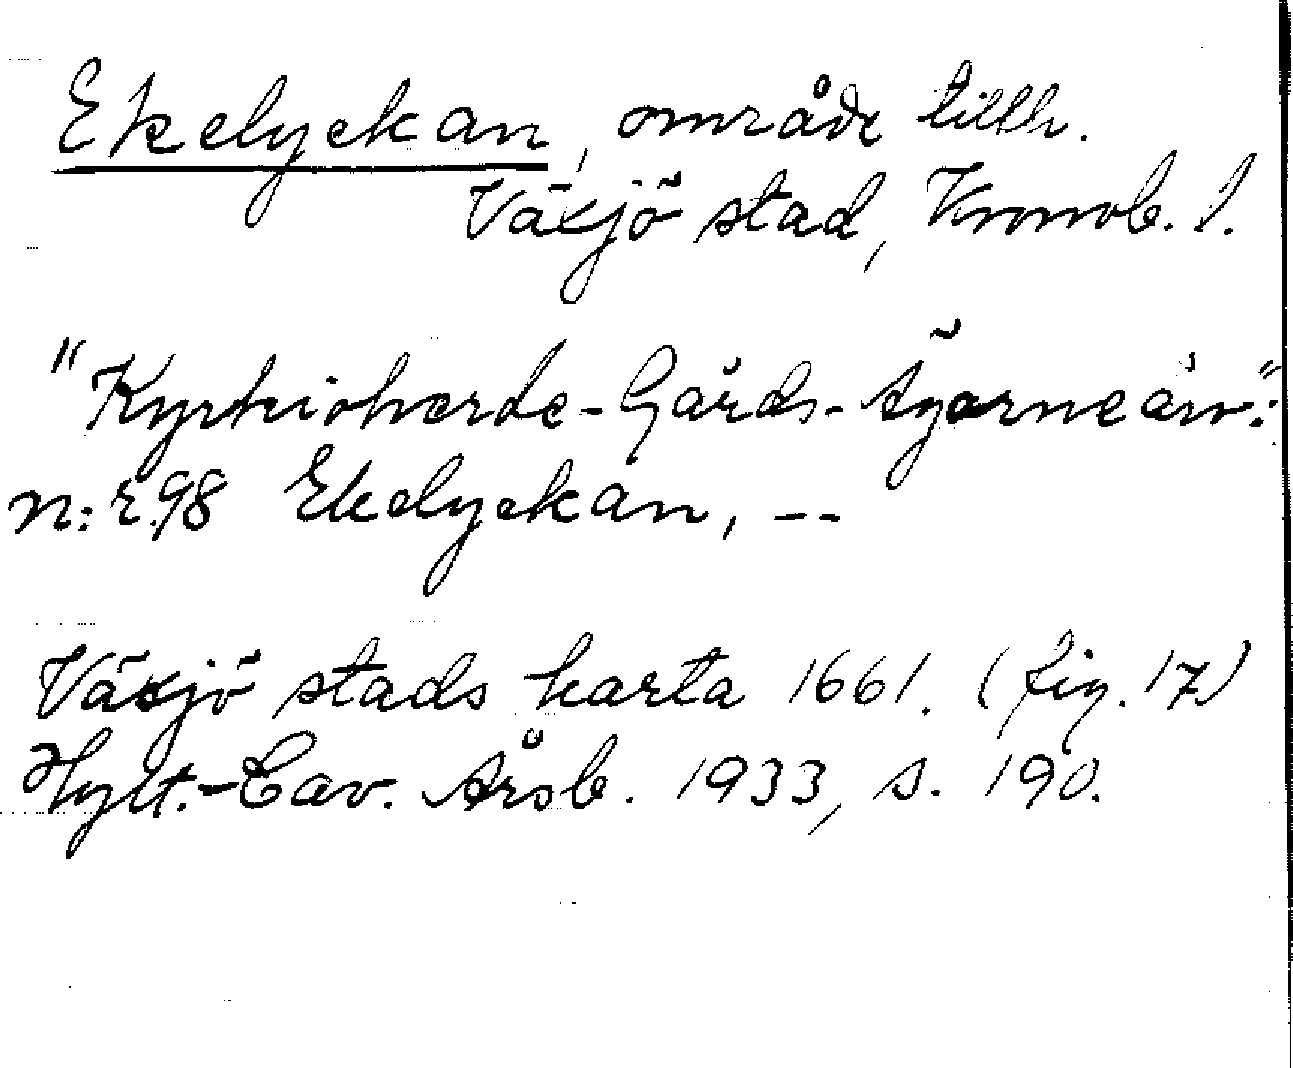 Ekelyckan, område tillh.
Växjö stad, Kronob. l.
"Kyrkioherde-Gårds-Ägorne äro:"
N: 98 Ekelyckan, --
Växjö stads karta 1661. (fig. 17)
Hylt.-Cav. Årsb. 1933, s. 190.